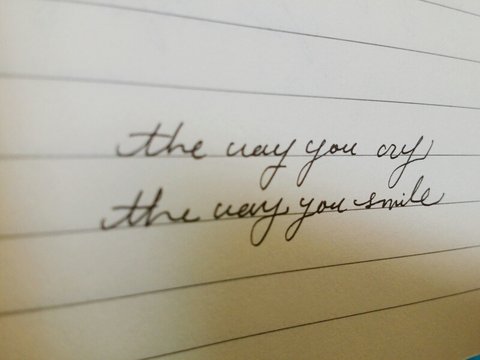 the way you cry
the way you smile